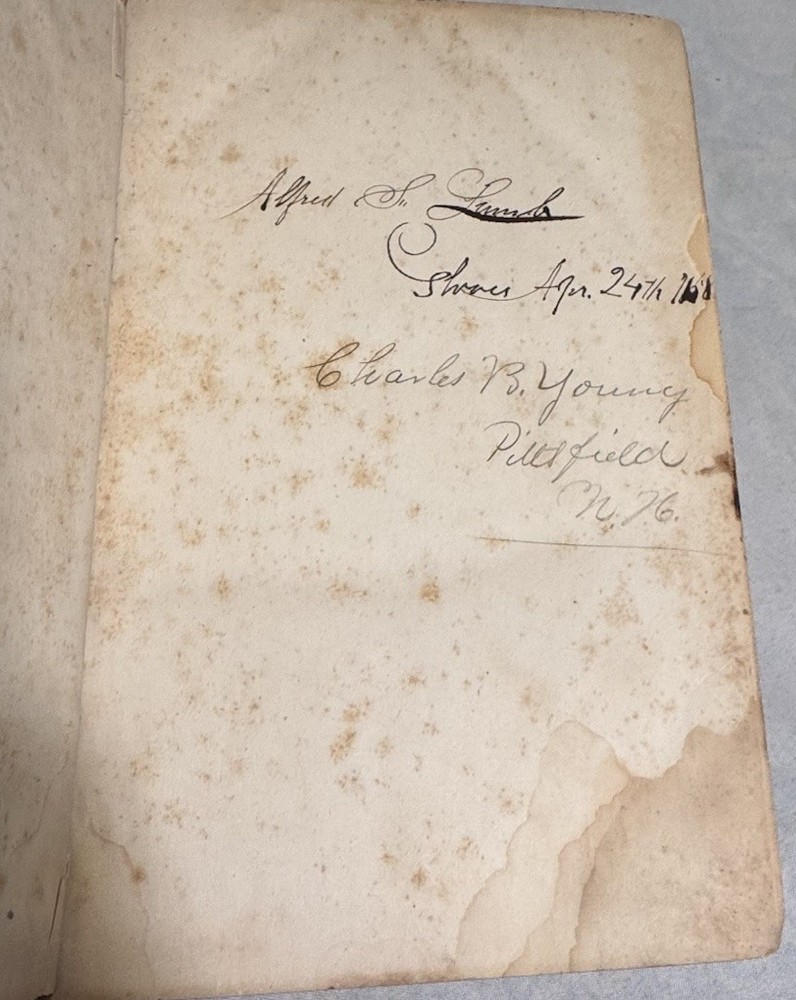 Alfred S. Lamb
Apr. 24th
Charles B. Young
Pittsfield
N. H.